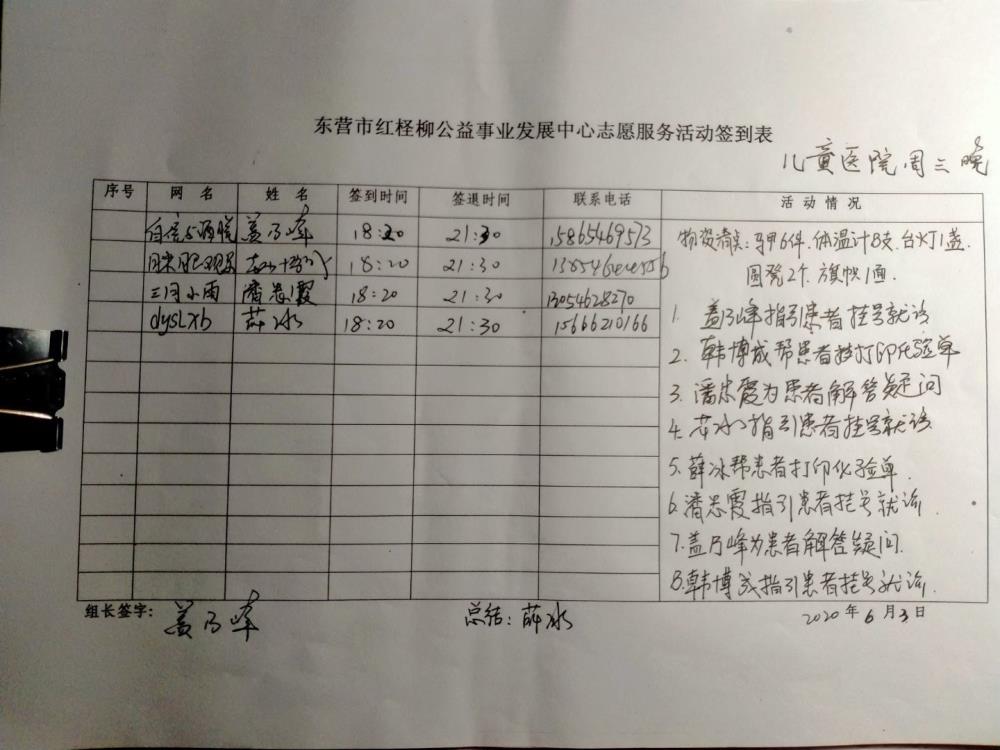 东营市红柽柳公益事业发展中心志愿服务活动签到表
儿童医院周三晚
序号 网 名 姓 名 签到时间 签退时间 联系电话 活 动 情 况
自信与洒脱 盖乃峰 18:20 21:30 15865469573
18:20 21:30
三月小雨 潘忠霞 18:20 21:30 13054628270
dyslxb 薛冰 18:20 21:30 15666210166
物资清点:马甲6件.体温计8支.台灯1盏.
圆凳2个.旗帜1面.
1. 盖乃峰指引患者挂号就诊
2. 韩博成帮患者打印化验单
3. 潘忠霞为患者解答疑问
4. 薛冰指引患者挂号就诊
5. 薛冰帮患者打印化验单.
6. 潘忠霞指引患者挂号就诊.
7. 盖乃峰为患者解答疑问.
8. 韩博成指引患者挂号就诊.
组长签字: 盖乃峰 总结: 薛冰 2020年6月3日